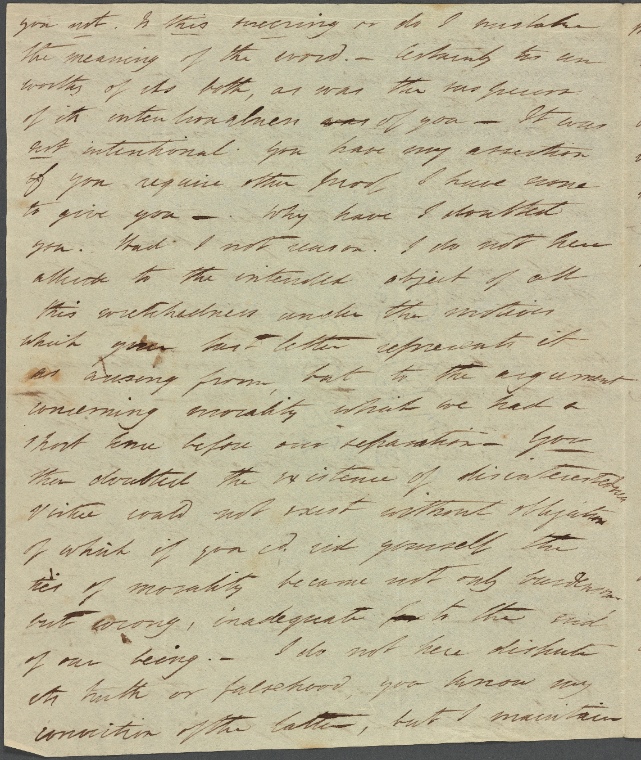 you not. Is this sneering or do I mistake
the meaning of the word. – Certainly tis un
worthy of us both, as was the suspicion
of its intentionalness of you – It was
not intentional. You have my assertion
If you require other proof, I have none
to give you –. Why have I doubted
you. Had I not reason. I do not here
allude to the intended object of all
this wretchedness under the motives
which your last letter represents it
as arising from but to the argument
concerning morality which we had a
short time before our separation – You
then doubted the existence of disinterestedness
Virtue could not exist without obligation
of which if you cd. rid yourself the
ties of morality became not only burdensome
but wrong, inadequate to the end
of our being. – I do not here dispute
its truth or falsehood, you know my
conviction of the latter, but I maintain